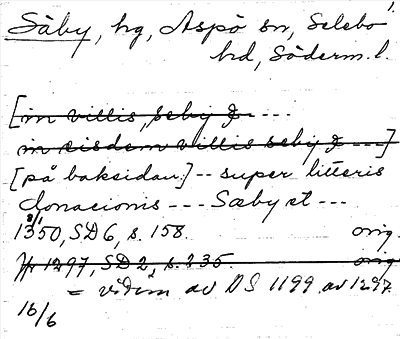 Säby, hg, Aspö sn, Selebo
hd, Söderm. l.
[in villis, seby & ---
in eisdem villis seby & ---]
[på baksidan] -- super litteris
donacionis --- Sæby et ---
8/1
1350, SD 6, s. 158. orig.
Yr 1297, SD 2, s. 235. orig
= vidim av DS 1199 av 1297
16/6